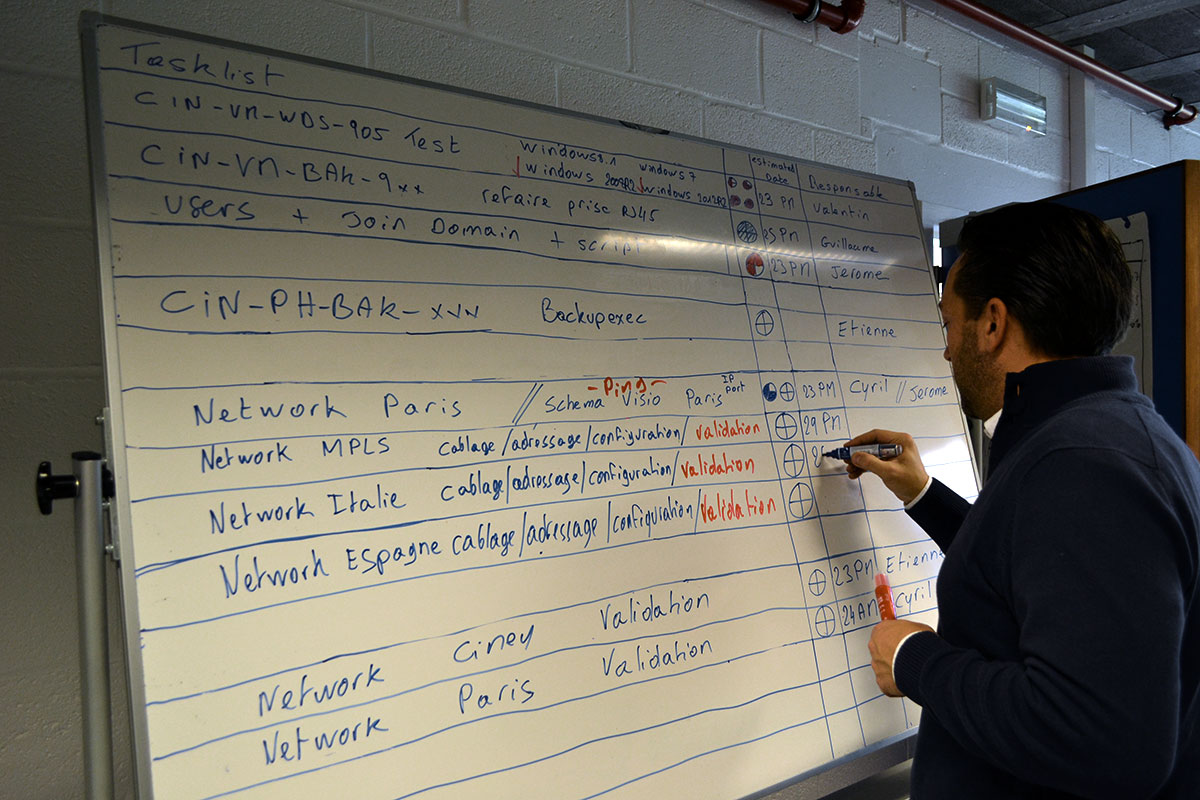 Tasklist estimated Date Responsable
CIN-VM-WDS-905 Test Windows8.1 windows7
windows 2008R2 windows 2012R2 23 PM Valentin
CiN-VM-BAK-9xx refaire prise RJ45 23 PM Guillaume
Users + Join Domain + script 23 PM Jerome
CiN-PH-BAK- Backupexec Etienne
Network Paris // Schema Visio -Ping- Paris IP port 23 PM Cyril // Jerome
Network MPLS cablage/adressage/configuration/validation 29 PM
Network Italie cablage/adressage/configuration/validation
Network Espagne cablage/adressage/configuration/validation
Network Ciney Validation 23 PM Etienne
Network Paris Validation 24 AM Cyril